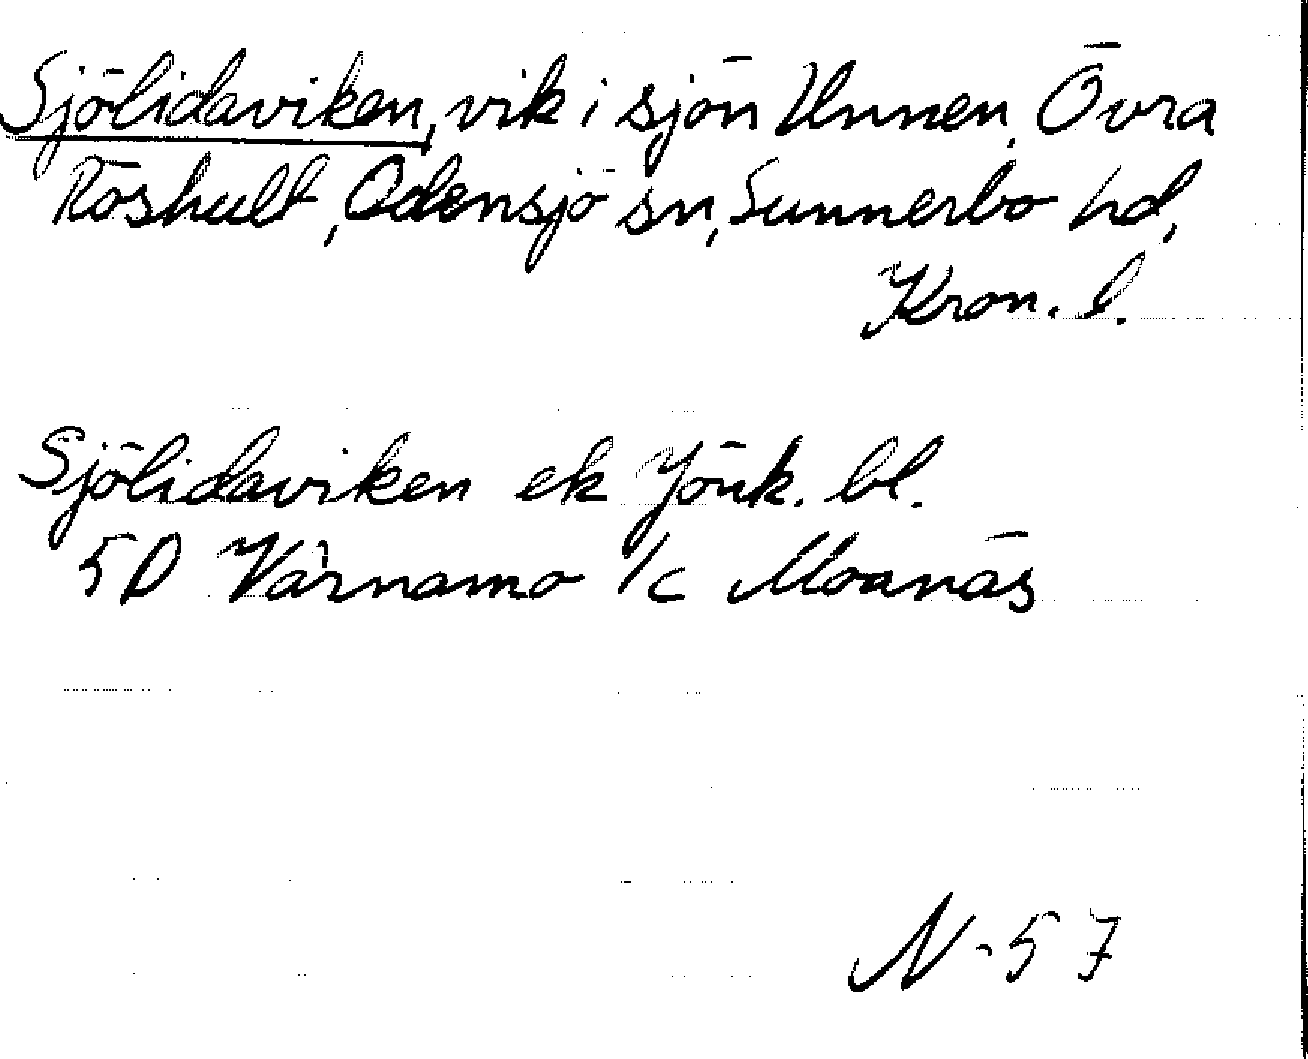 Sjölidaviken, vik i sjön Unnen, Övra
Röshult, Odensjö sn, Sunnerbo hd,
Kron. l.
Sjölidaviken ek Jönk. bl.
5D Värnamo 1/c Moanäs
N-57